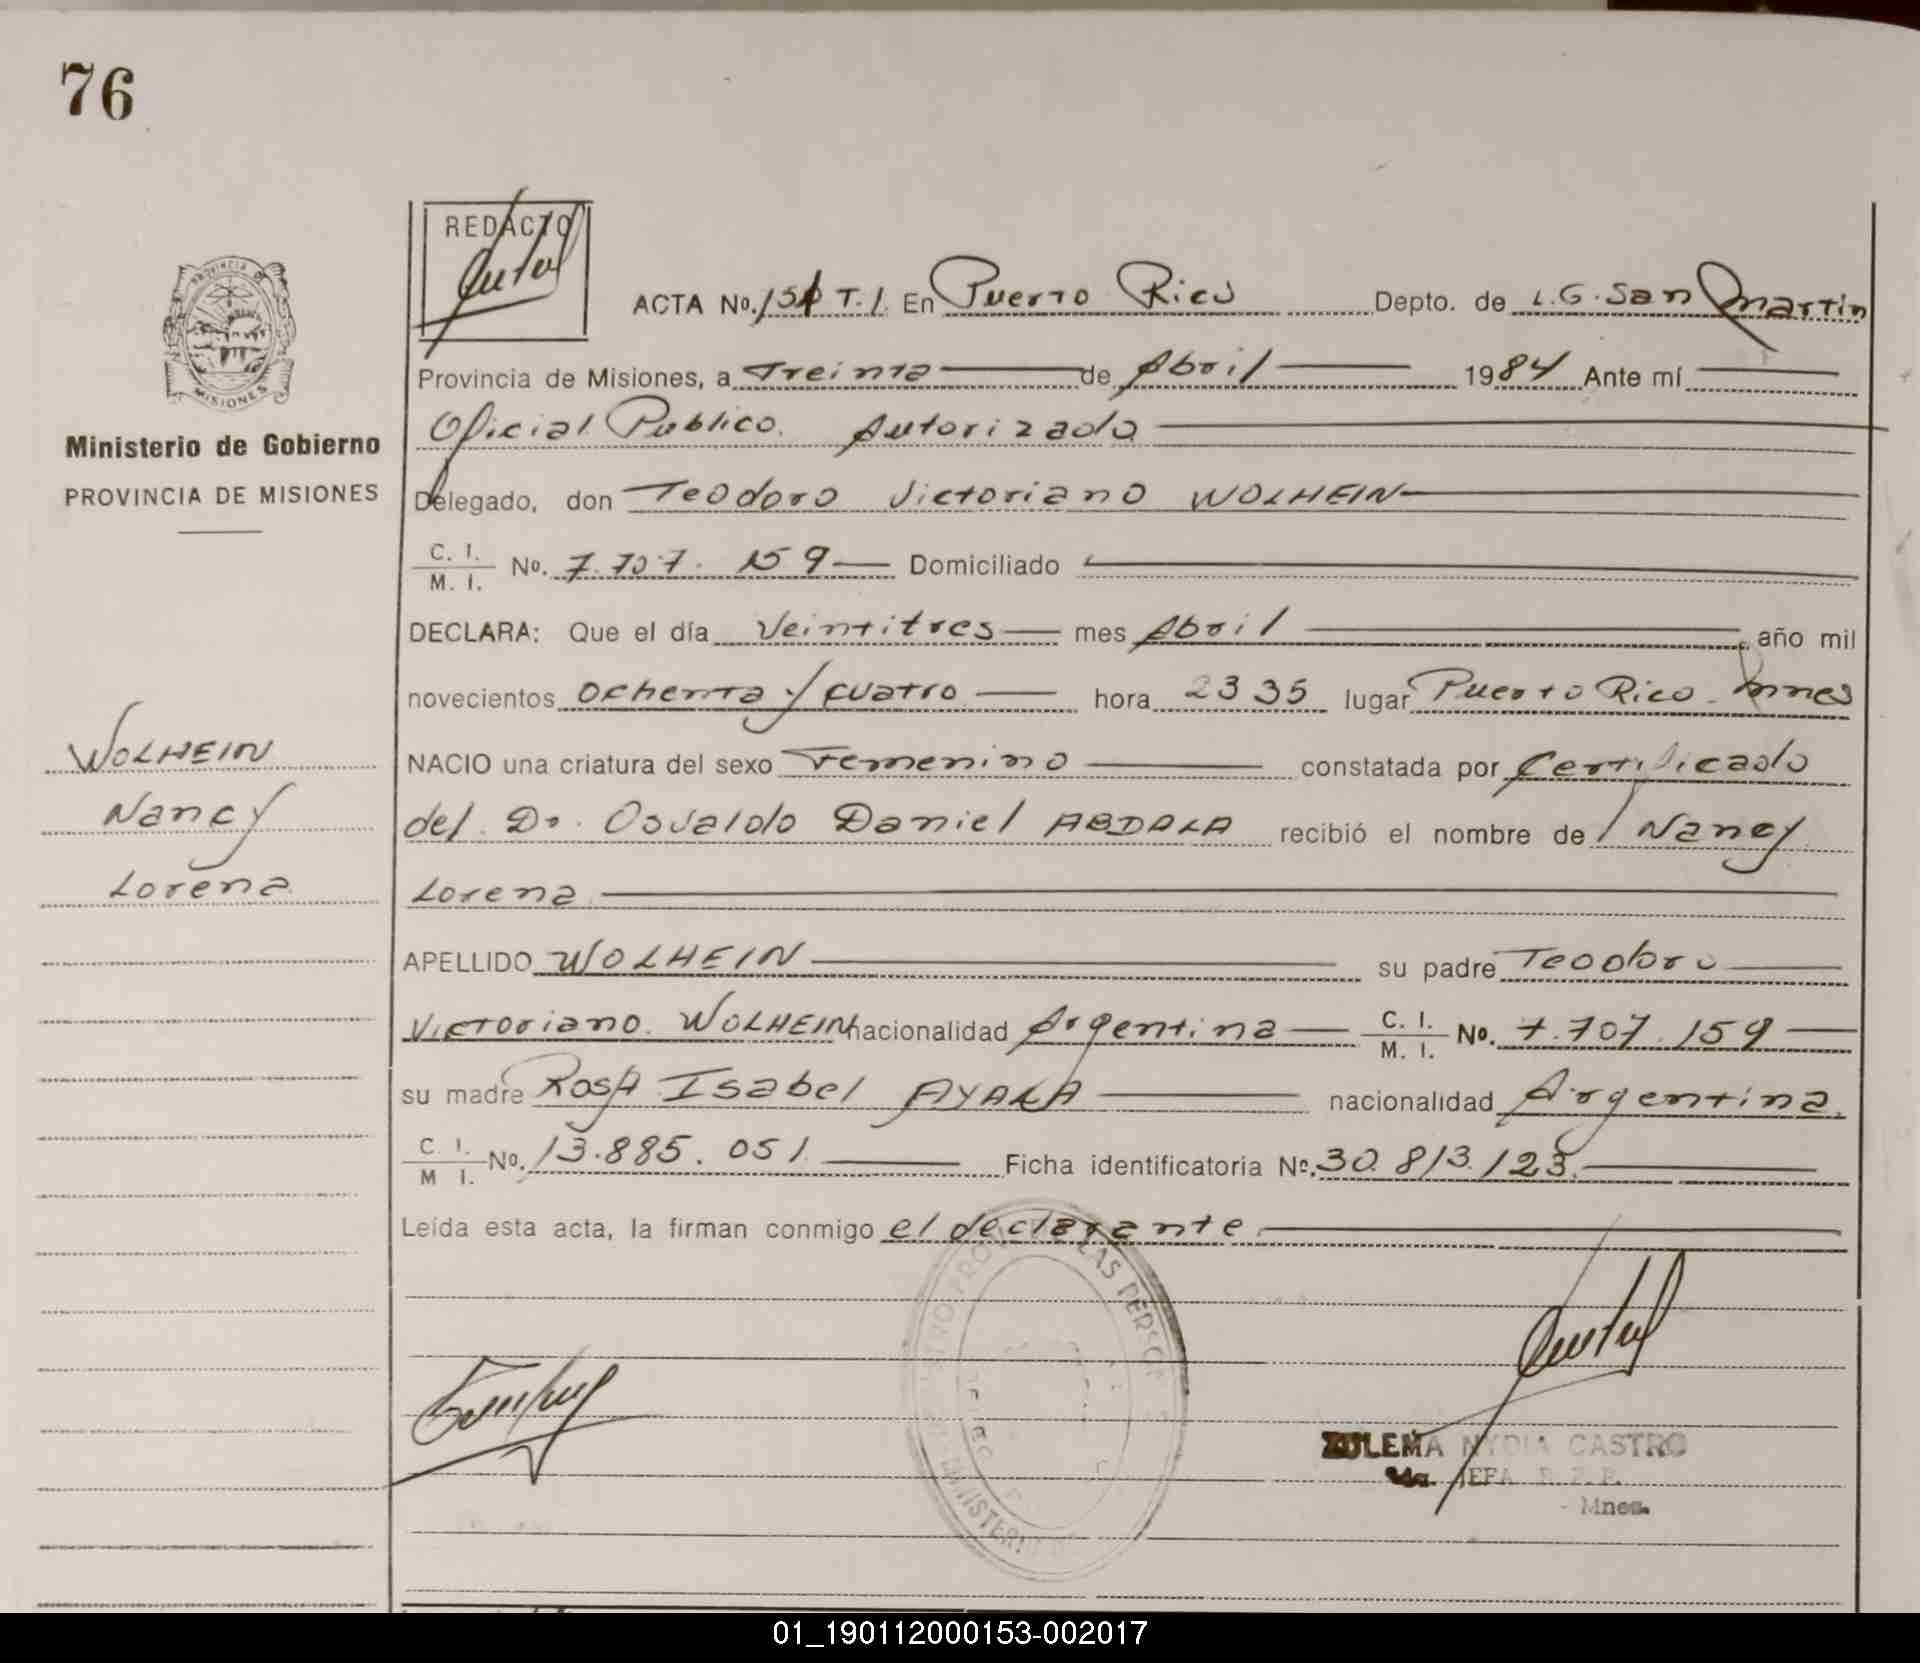 76
REDACTO
PROVINCIA DE
MISIONES
Ministerio de Gobierno
PROVINCIA DE MISIONES
ACTA No. T. 1. En Puerto Rico Depto. de L.G. San Martin
Provincia de Misiones, a Treinta de Abril 1984 Ante mí
Oficial Publico. Autorizado
Delegado, don Teodoro Victoriano WOLHEIN
C. I. / M. I. No. 7.707.159 Domiciliado
DECLARA: Que el día Veintitres mes Abril año mil
novecientos Ochenta y cuatro hora 2335 lugar Puerto Rico - Mnes
NACIO una criatura del sexo Femenino constatada por Certificado
del Dr. Osvaldo Daniel ABDALA recibió el nombre de Nancy
Lorena
APELLIDO WOLHEIN su padre Teodoro
Victoriano. WOLHEIN nacionalidad Argentina C. I. / M. I. No. 7.707.159
su madre Rosa Isabel AYALA nacionalidad Argentina.
C. I. / M I. No. 13.885.051 Ficha identificatoria Nº. 30.813.123.
Leída esta acta, la firman conmigo el declarante
WOLHEIN
Nancy
Lorena
LAS PERSO
MINISTERIO
ZULEMA NYDIA CASTRO
JEFA
Mnes.
01_190112000153-002017